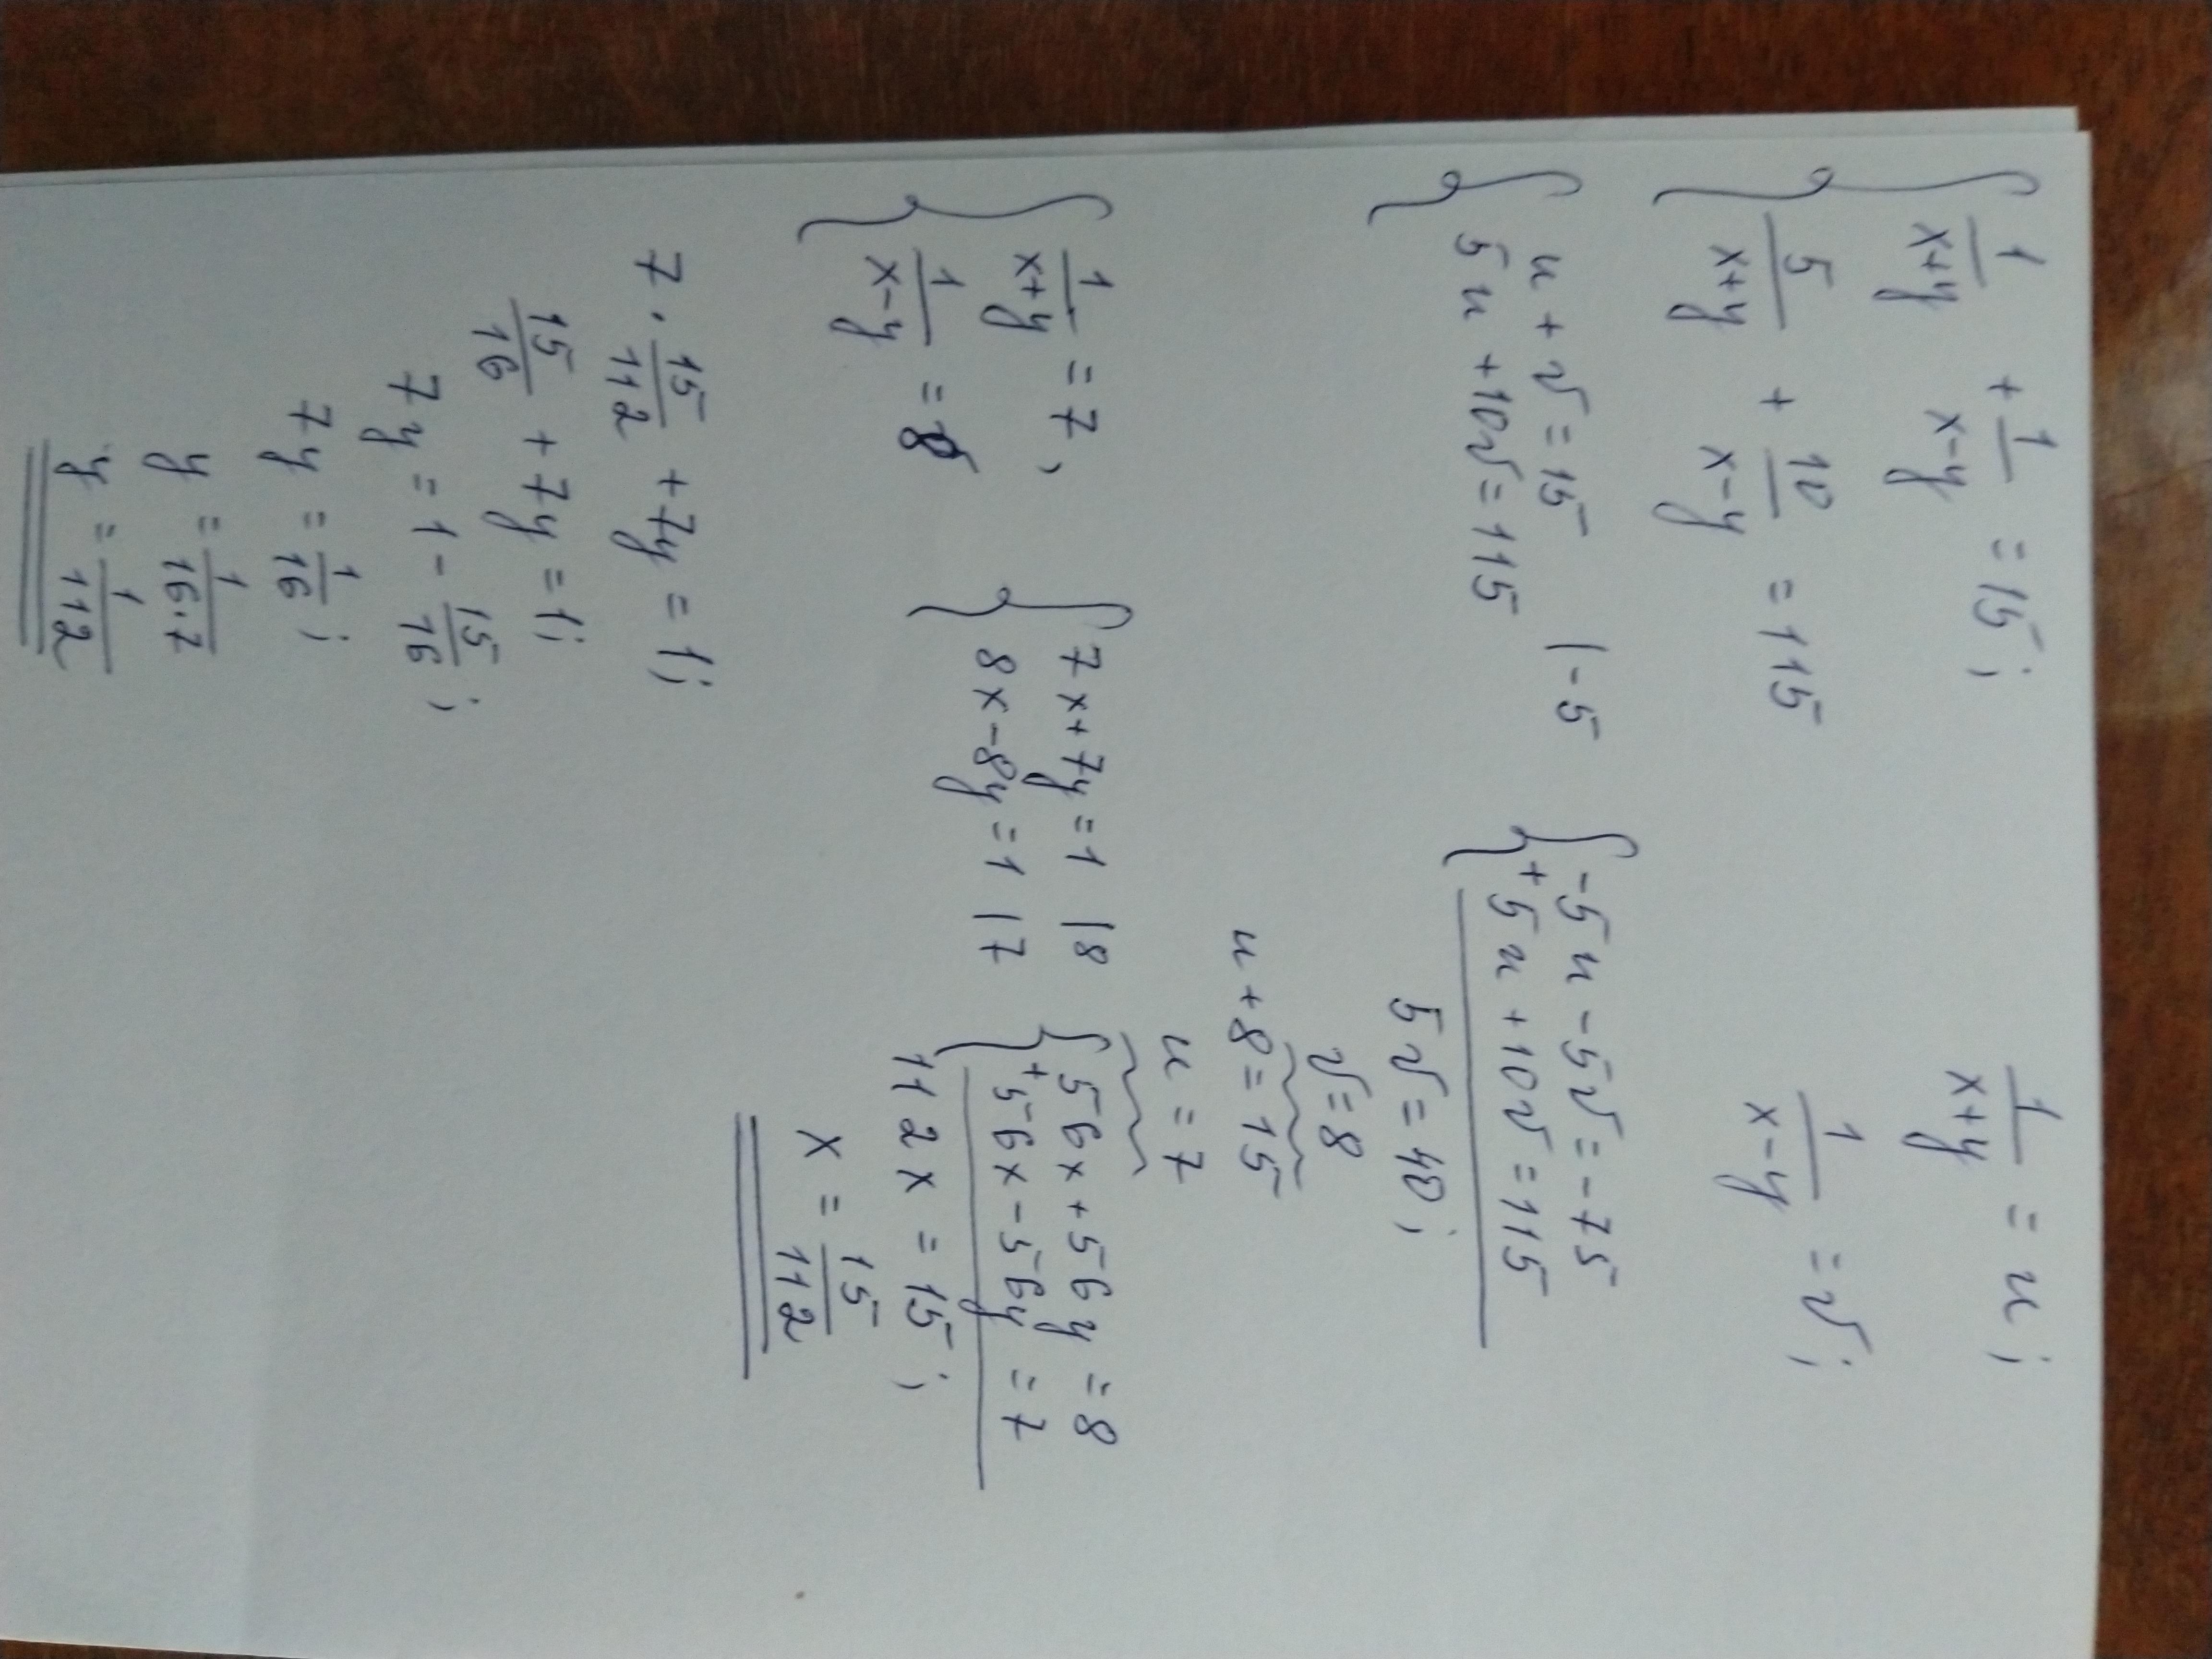 { 1/(x+y) + 1/(x-y) = 15;
5/(x+y) + 10/(x-y) = 115
1/(x+y) = u;
1/(x-y) = v;
{ u + v = 15 | -5
5u + 10v = 115
{ -5u - 5v = -75
+ 5u + 10v = 115
5v = 40;
v = 8
u + 8 = 15
u = 7
{ 1/(x+y) = 7,
1/(x-y) = 8
{ 7x + 7y = 1 | 8
8x - 8y = 1 | 7
{ 56x + 56y = 8
+ 56x - 56y = 7
112x = 15;
x = 15/112
7 · 15/112 + 7y = 1;
15/16 + 7y = 1;
7y = 1 - 15/16;
7y = 1/16;
y = 1/(16·7)
y = 1/112